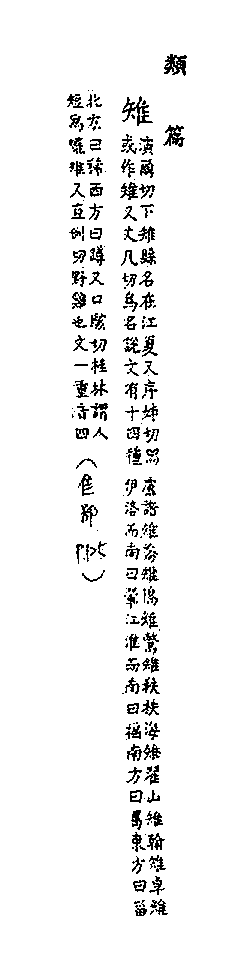 類篇
雉
演爾切下雉縣名在江夏又序姊切
或作雉又丈几切鳥名說文有十四種
盧諸雉喬雉鳪雉鷩雉秩秩海雉翟山雉翰雉卓雉
伊洛而南曰翬江淮而南曰搖南方曰東方曰甾
北方曰稀西方曰蹲又口駭切桂林謂人
短為矲雉又直例切野雞也文一重音四
(隹部 P125)